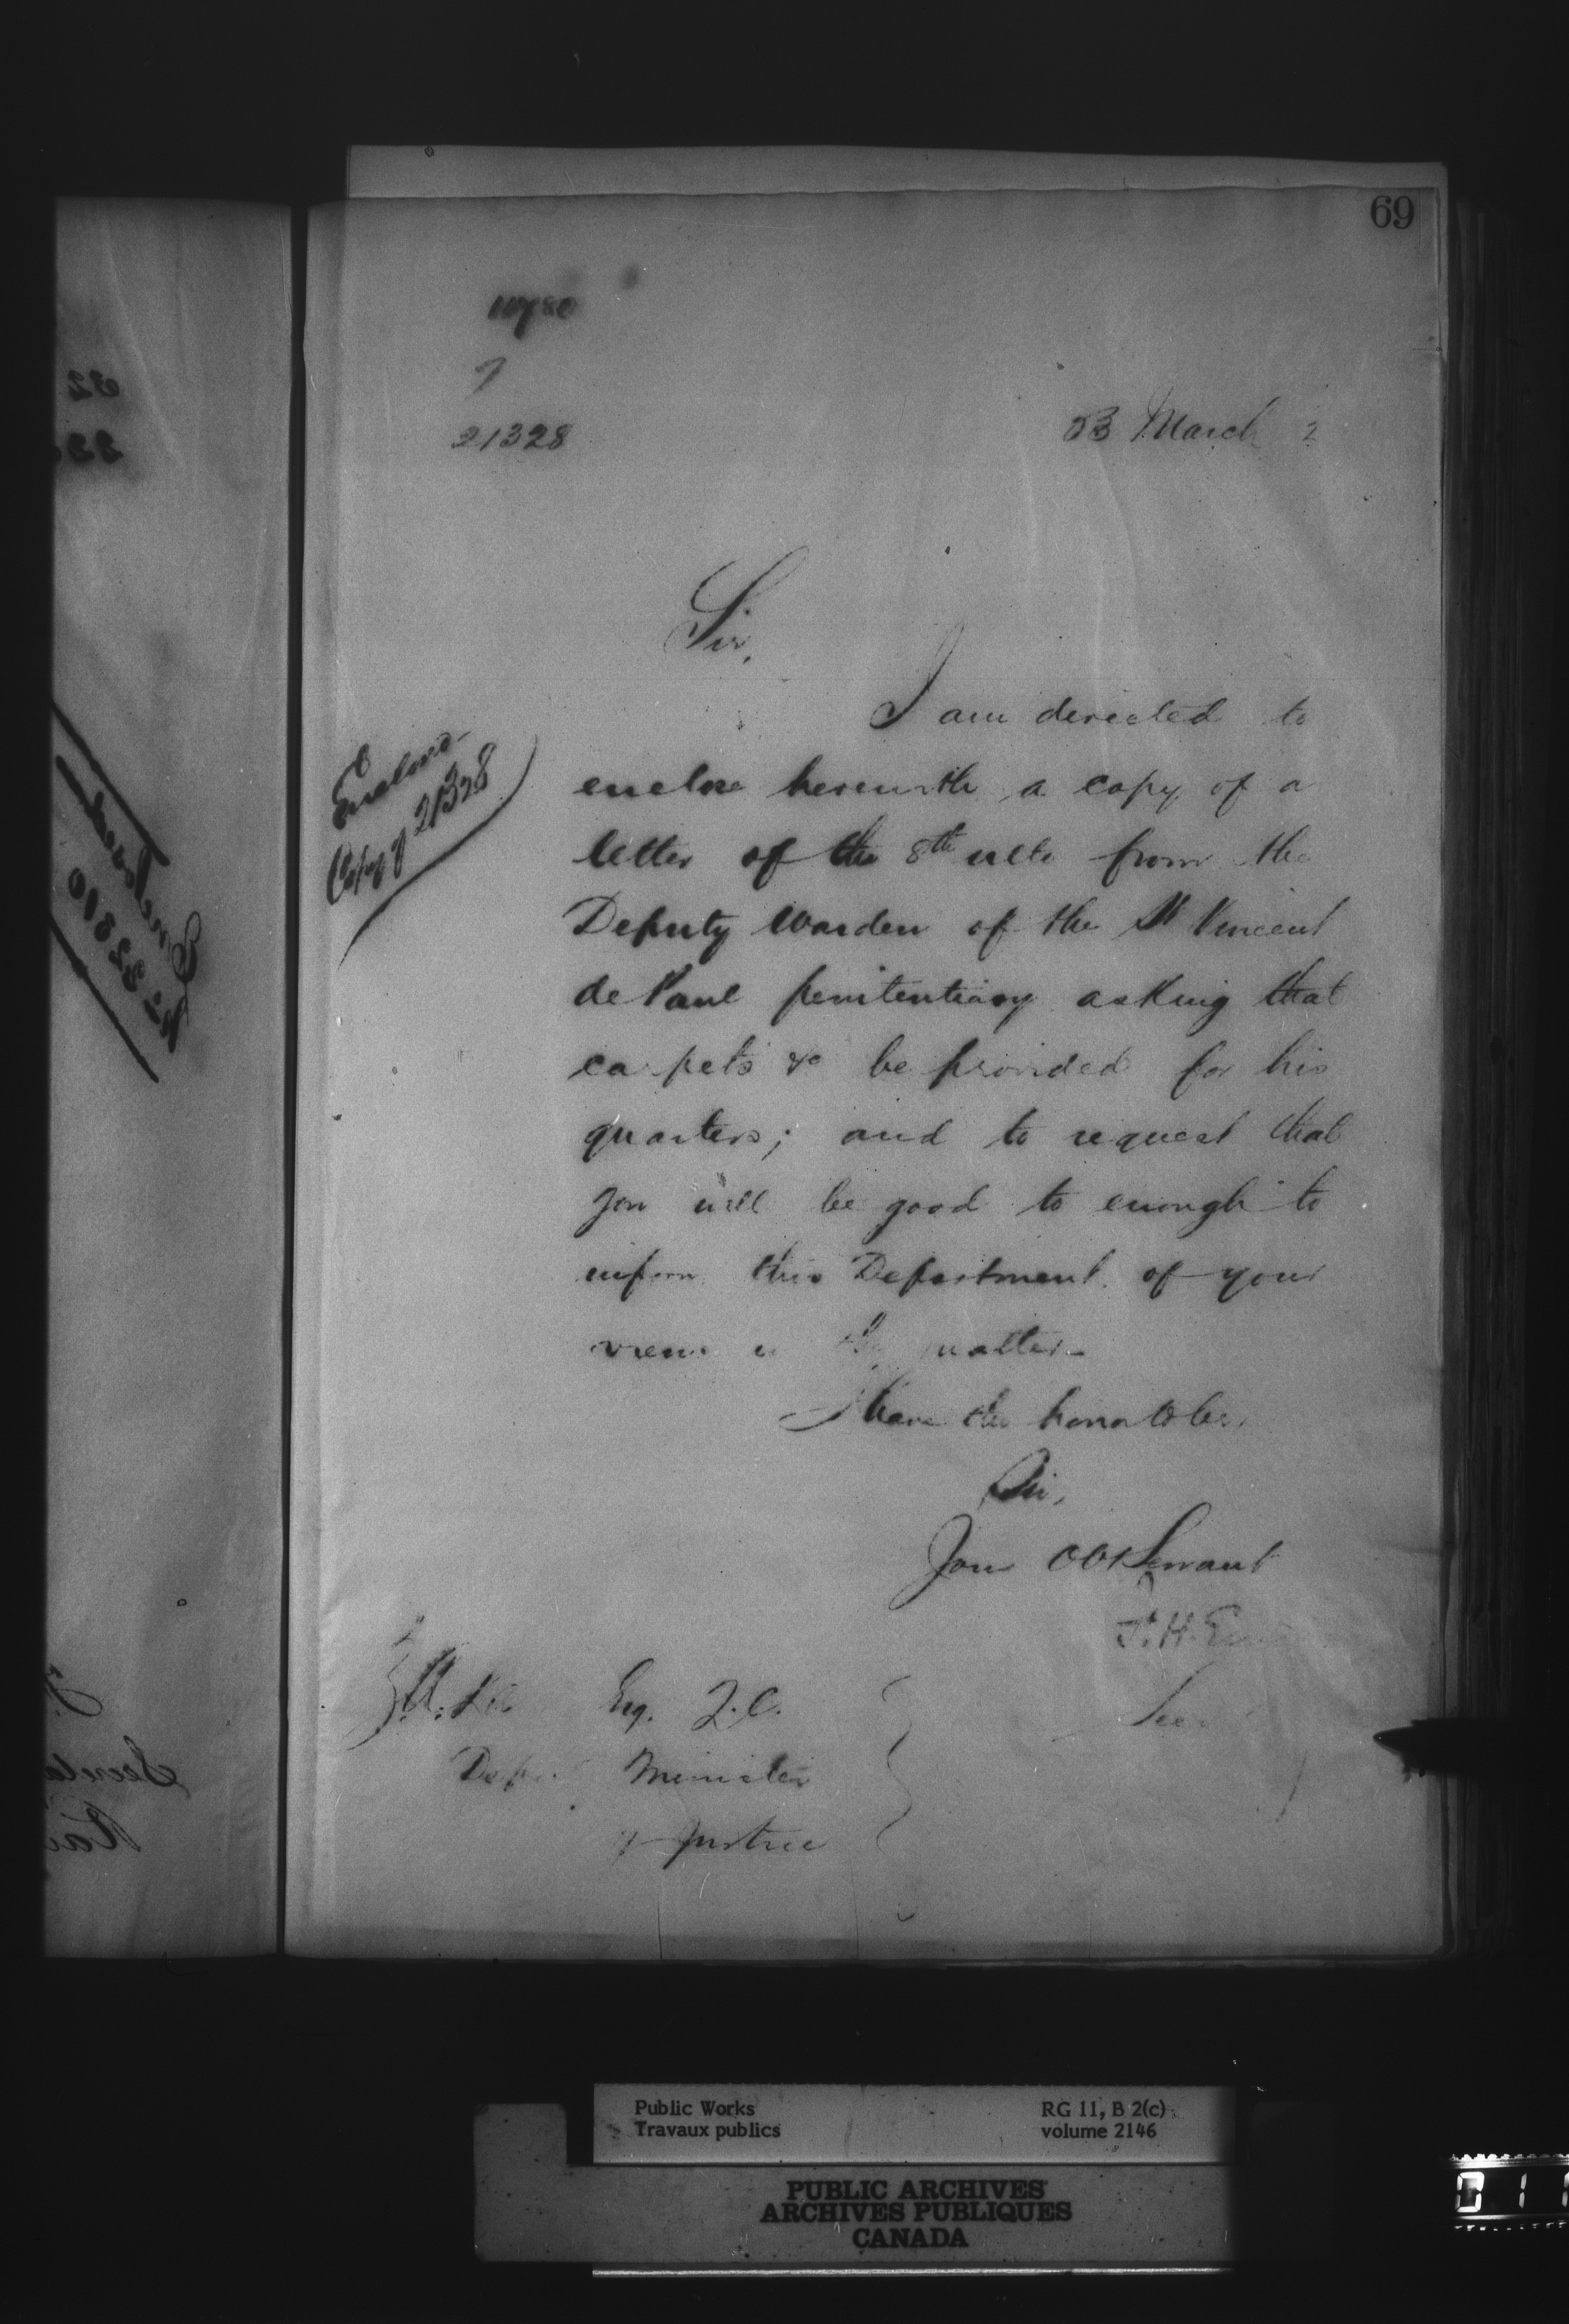 69
21328
March 2
Sir,
I am directed to
enclose herewith a copy of a
letter of the 8th ulto from the
Deputy Warden of the St Vincent
de Paul penitentiary asking that
carpets &c be provided for his
quarters; and to request that
you will be good to enough to
inform this Department of your
views in the matter
I have the honor to be,
Sir,
Your Obt Servant
F. H.
Esq. Q.C.
Deputy Minister
of Justice
Enclose
Copy of 21328
Public Works
Travaux publics
RG 11, B 2(c)
volume 2146
PUBLIC ARCHIVES
ARCHIVES PUBLIQUES
CANADA
011